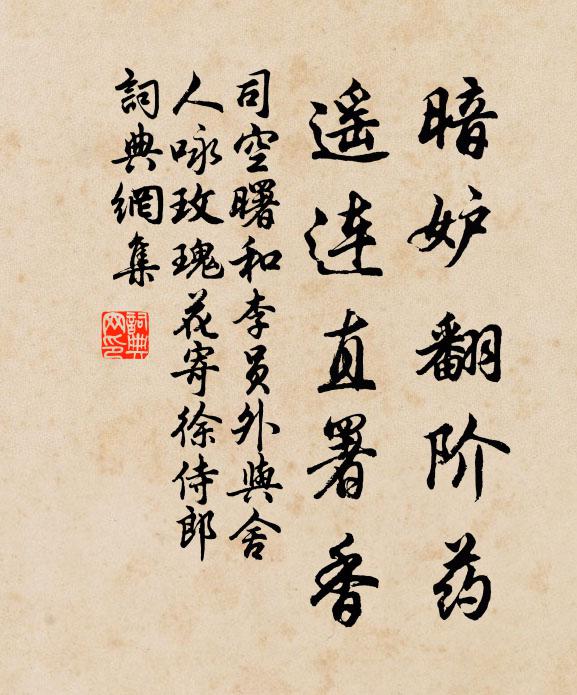 暗妒翻阶药
遥连直署香
司空曙和李员外與舍
人咏玫瑰花寄徐侍郎
詞典網集
詞典網印